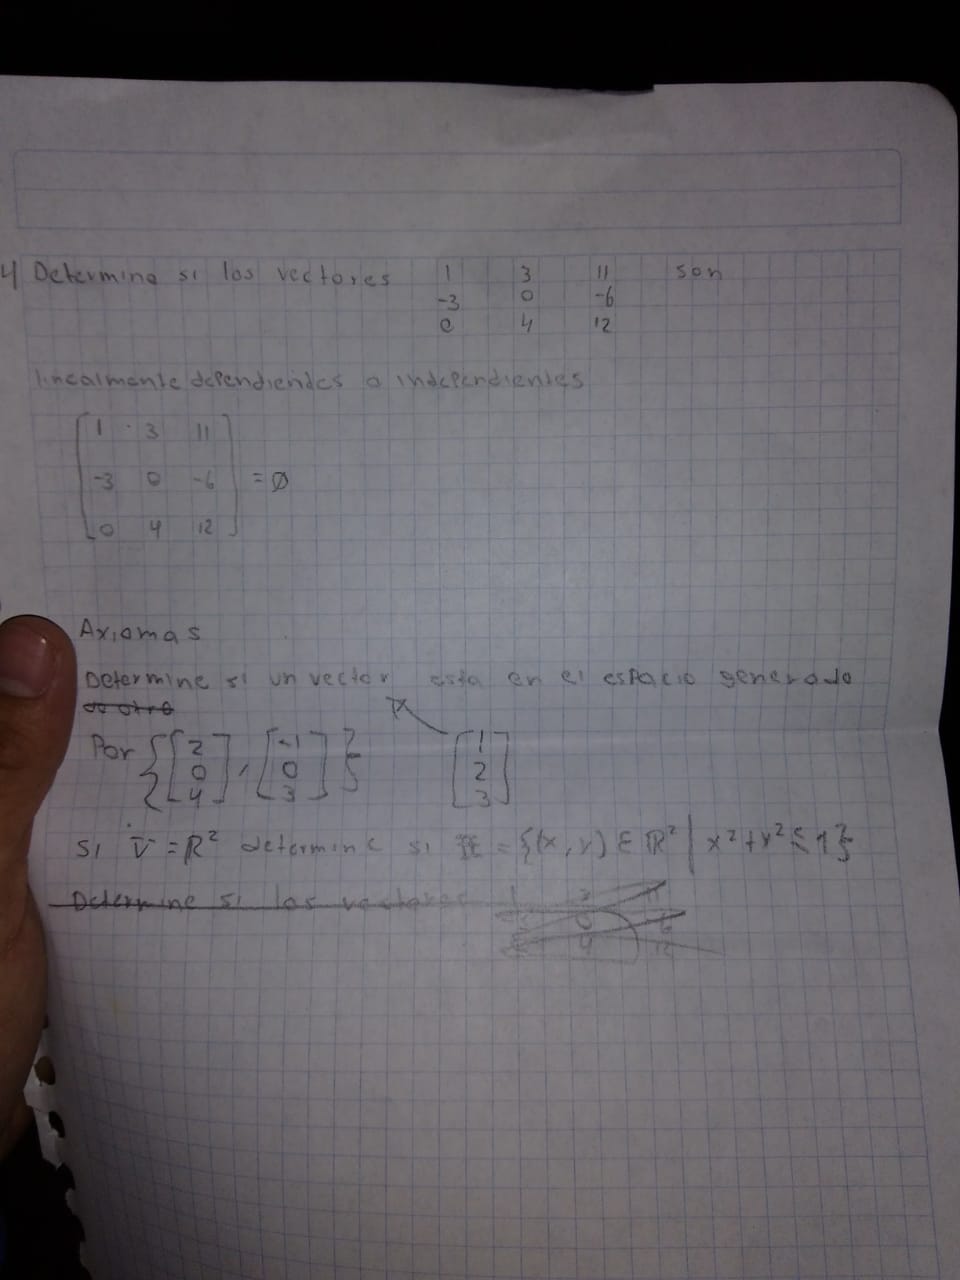 4 Determine si los vectores 1 3 11 son
-3 0 -6
0 4 12
linealmente dependientes o independientes
1 3 11
-3 0 -6 = Ø
0 4 12
Axiomas
Determine si un vector esta en el espacio generado
de otro
Por {[2 0 4], [-1 0 3]} [1 2 3]
Si V = R² determine si = {(x, y) ε R² | x² + y² ≤ 1}
Determine si los vectores 1 3 11
0
4 12